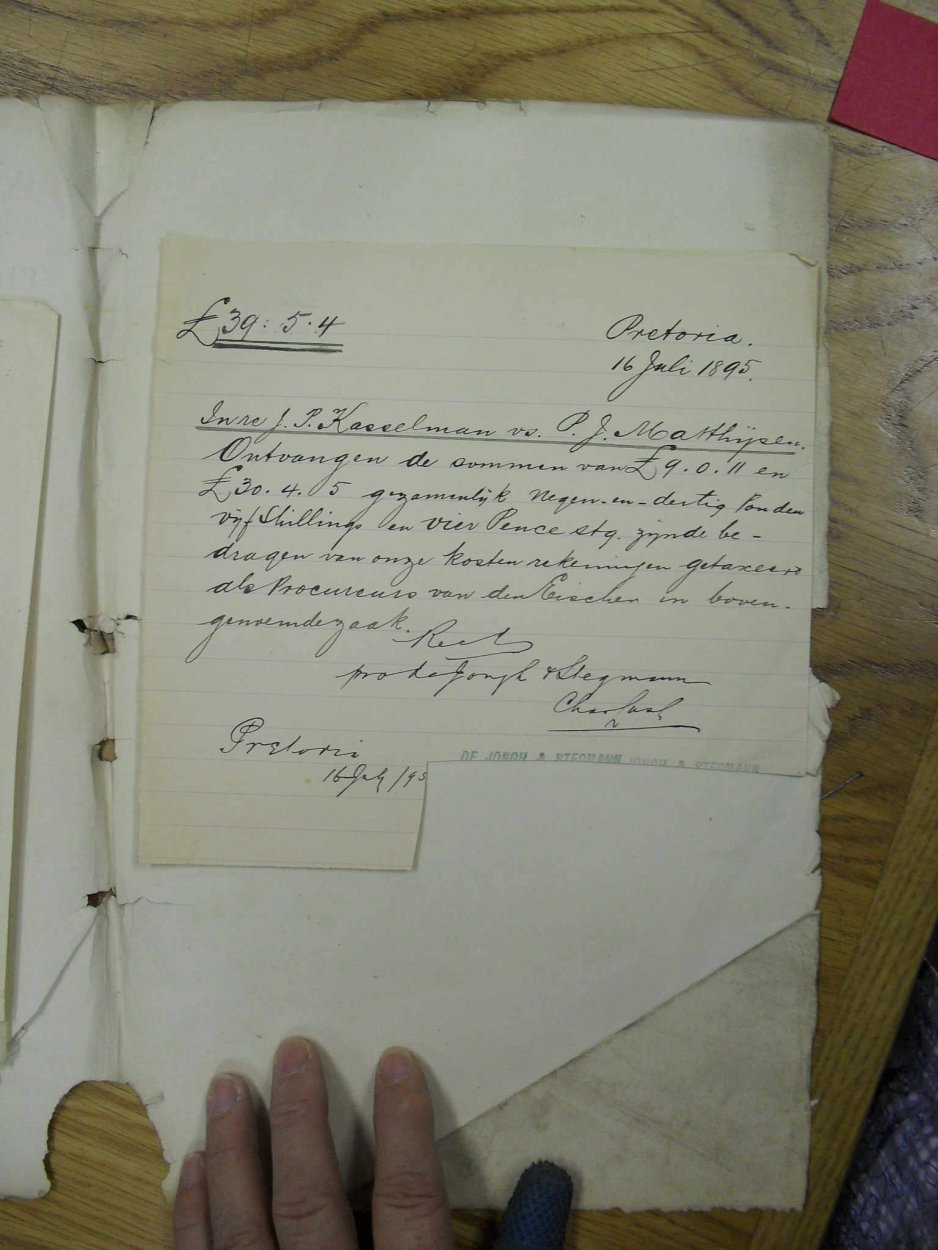 £39: 5. 4
Pretoria.
16 Juli 1895.
In re J. P. Kasselman vs. P. J. Matthijsen.
Ontvangen de sommen van £9. 0. 11 en
£30. 4. 5 gezamenlijk negen-en-dertig Ponden
vijf Shillings en vier Pence stg. zijnde be-
dragen van onze kosten rekeningen getaxeerd
als Procureurs van den Eischer in boven-
genoemde zaak.
pro de Jongh & Stegmann
Pretoria
16 July /95
DE JONGH & STEGMANN JONGH & STEGMANN